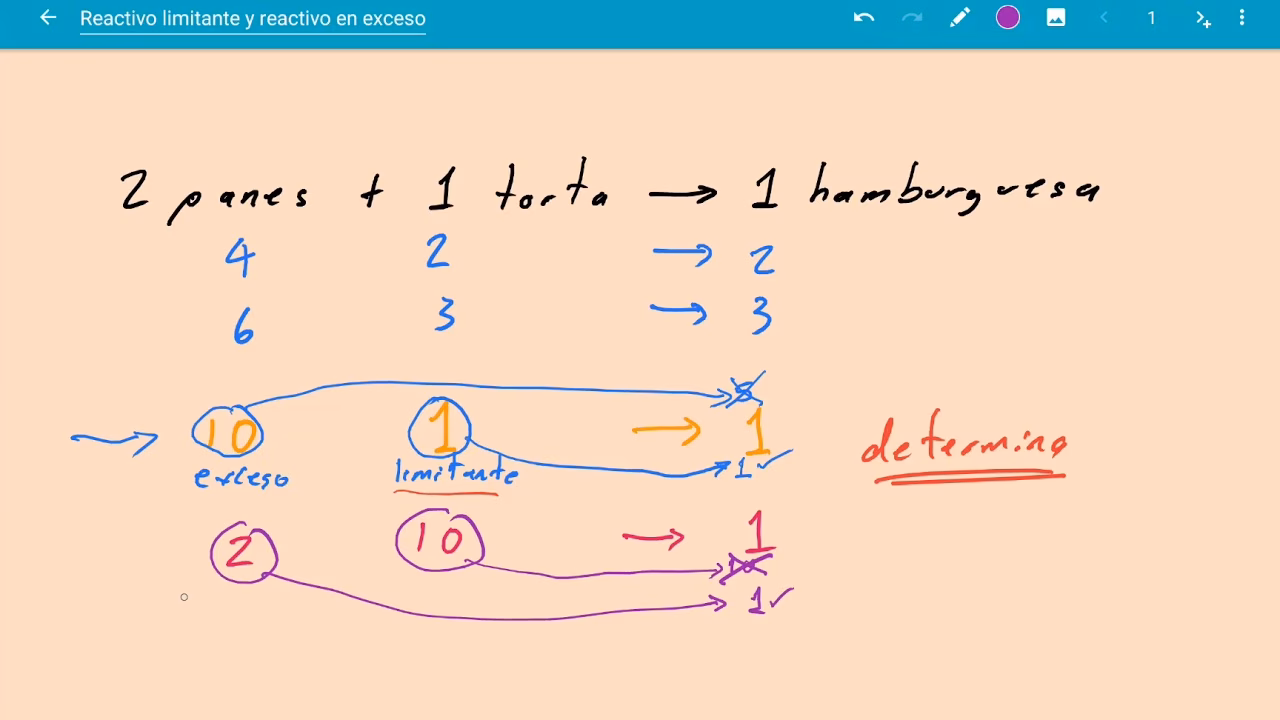 Reactivo limitante y reactivo en exceso
1
2 panes + 1 torta → 1 hamburguesa
4 2 → 2
6 3 → 3
5
→ 10 1 → 1 determina
exceso limitante 1 ✓
2 10 → 1
10
1 ✓